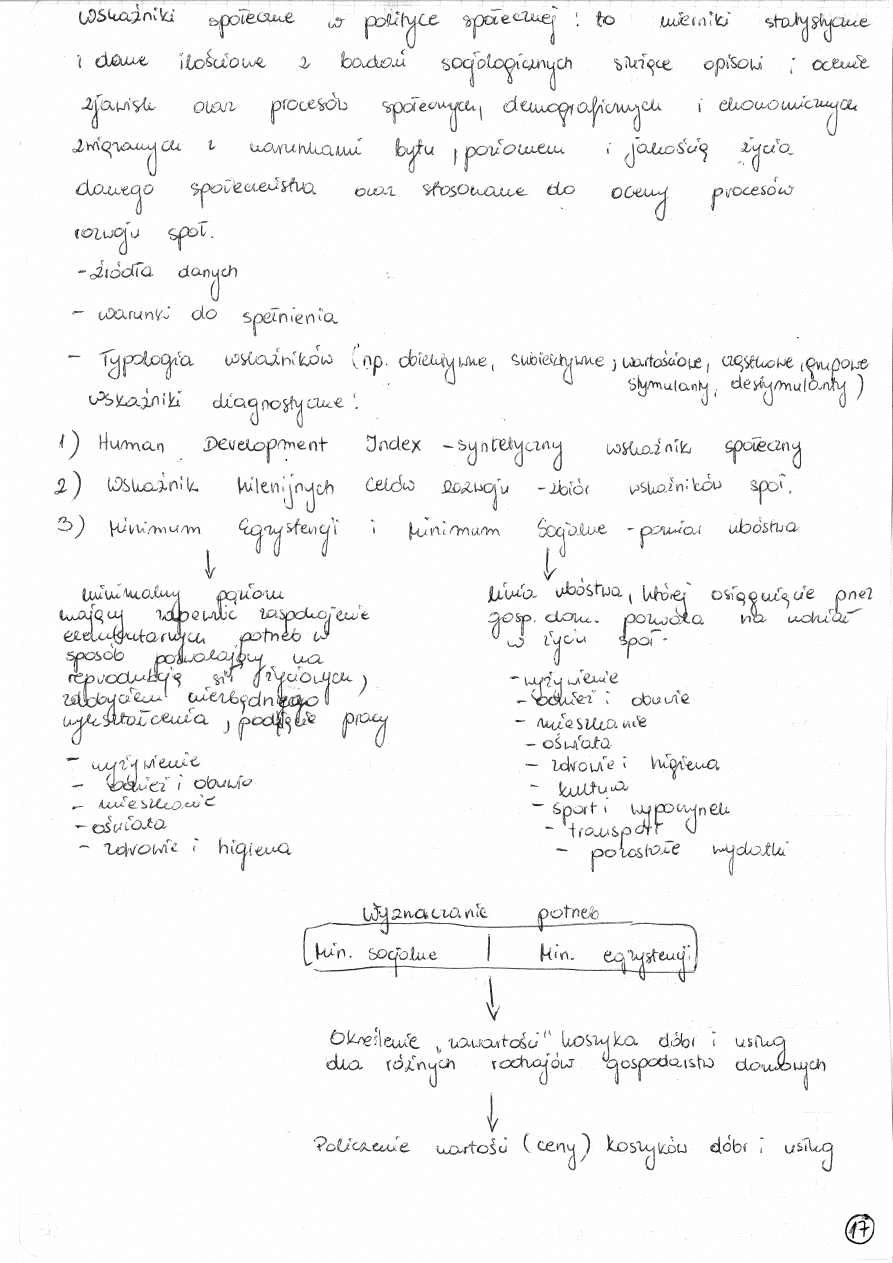 Wskaźniki społeczne w polityce społecznej: to mierniki statystyczne
i dane ilościowe z badań socjologicznych służące opisowi i ocenie
zjawisk oraz procesów społecznych, demograficznych i ekonomicznych
związanych z warunkami bytu, poziomem i jakością życia
danego społeczeństwa oraz stosowane do oceny procesów
rozwoju społ.
- źródła danych
- warunki do spełnienia
- Typologia wskaźników (np. obiektywne, subiektywne, wartościowe, cząstkowe, grupowe
stymulanty, destymulanty)
Wskaźniki diagnostyczne:
1) Human Development Index - syntetyczny wskaźnik społeczny
2) Wskaźnik Milenijnych Celów Rozwoju - zbiór wskaźników społ.
3) Minimum Egzystencji i Minimum Socjalne - pomiar ubóstwa
minimalny poziom
mający zapewnić zaspokojenie
elementarnych potrzeb w
sposób pozwalający na
reprodukcję sił życiowych,
zdobyciem niezbędnego
wykształcenia, podjęcie pracy
- wyżywienie
- odzież i obuwie
- mieszkanie
- oświata
- zdrowie i higiena
Linia ubóstwa, której osiągnięcie przez
gosp. dom. pozwala na udział
w życiu społ.
- wyżywienie
- odzież i obuwie
- mieszkanie
- oświata
- zdrowie i higiena
- kultura
- sport i wypoczynek
- transport
- pozostałe wydatki
Wyznaczanie potrzeb
Min. socjalne | Min. egzystencji
Określenie „zawartości" koszyka dóbr i usług
dla różnych rodzajów gospodarstw domowych
Policzenie wartości (ceny) koszyków dóbr i usług
17